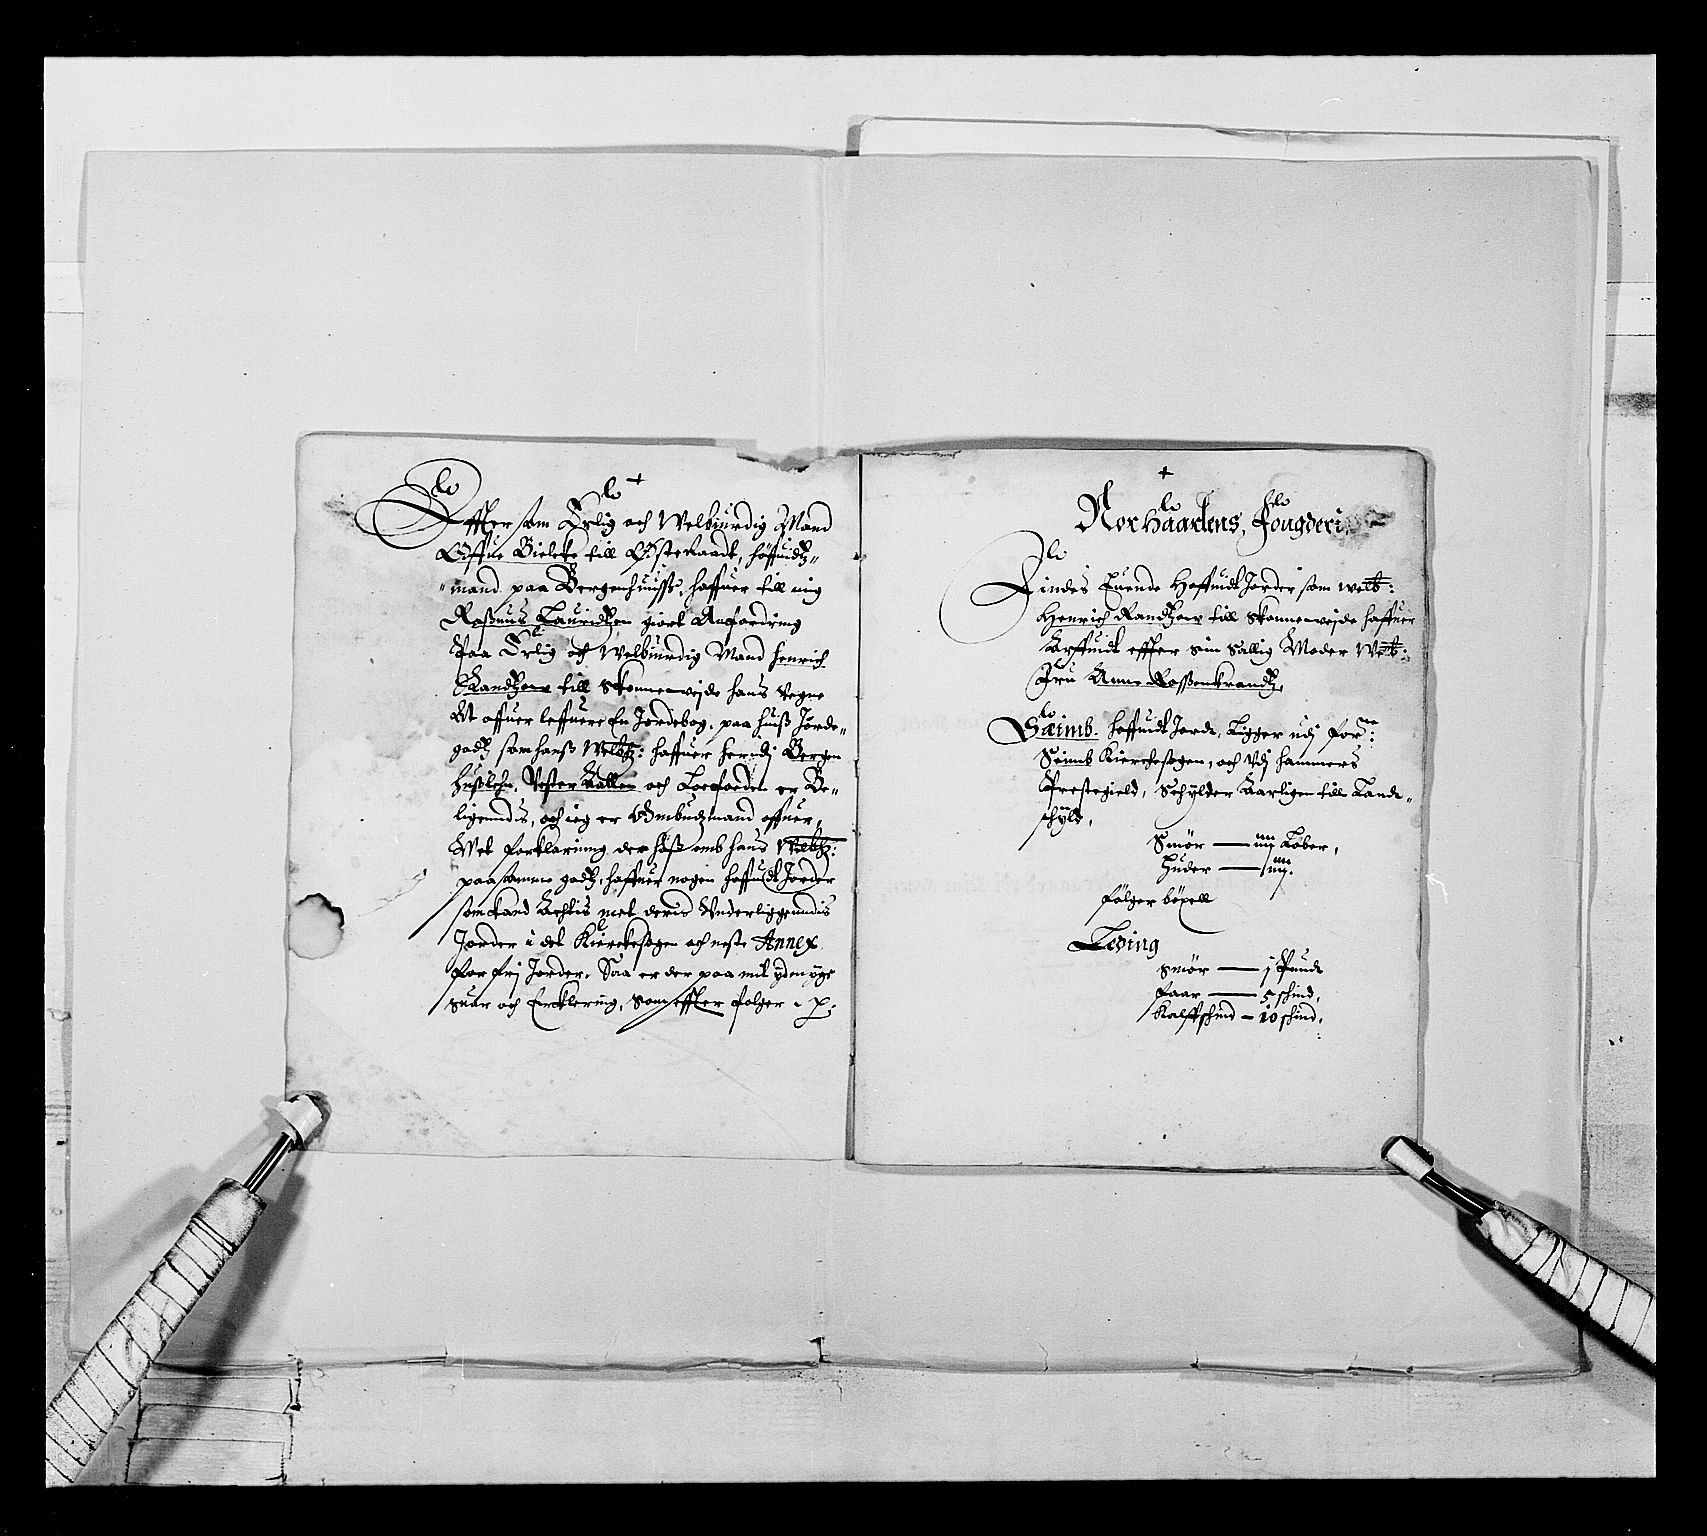 Effter som Erlig och Welbiurdig Mand
Offue Bielcke till Østeraadt, höffuidtz„
„mand paa Bergenhuuss, haffuer till mig
Rasmus Lauridtzen giort Anfordring
Paa Erlig och Welbiurdig Mand Henrich
Randtzow till Skonneweyde hans Vegne
At offuer leffuere En Jordebog, paa huis Jorde„
godtz som hans Welbz: haffuer herudj Bergen
husslehn, Vester Aallen och Loefoeden er Be„
ligenndis, och ieg er Ombudzmand offuer,
Met forklaring der hoss omb hans Welbz:
paa samme godtz, haffuer nogen hoffuidt Jorder
som kand Achtis met deris Underliggenndis
Jorder i det Kierckesogen och neste Annex,
for frj Jorder, Saa er der paa mit ydmyge
suar och Erklering, som effter følger
+
Norhaarlens, Fougderi,
Findes Euende Hoffuidt Jorder som Welb:
Henrich Randtzow till Skonneweyde haffuer
Arffuidt effter sin Sallig Moder Welb:
Fru Anne Rossenkrandtz,
Sæimb. hoffuidt Jorde, Ligger udj for:ne
Seimb Kierckesogen, och Udj hammers
Prestegield, Schylder Aarligen till Lande„
schyld,
Smör — iiii Løber,
Huder — iiii.
følger böxell
Leding
Smör — j Pund
Faar — 5 schind,
Kalffschind — 10 schind,